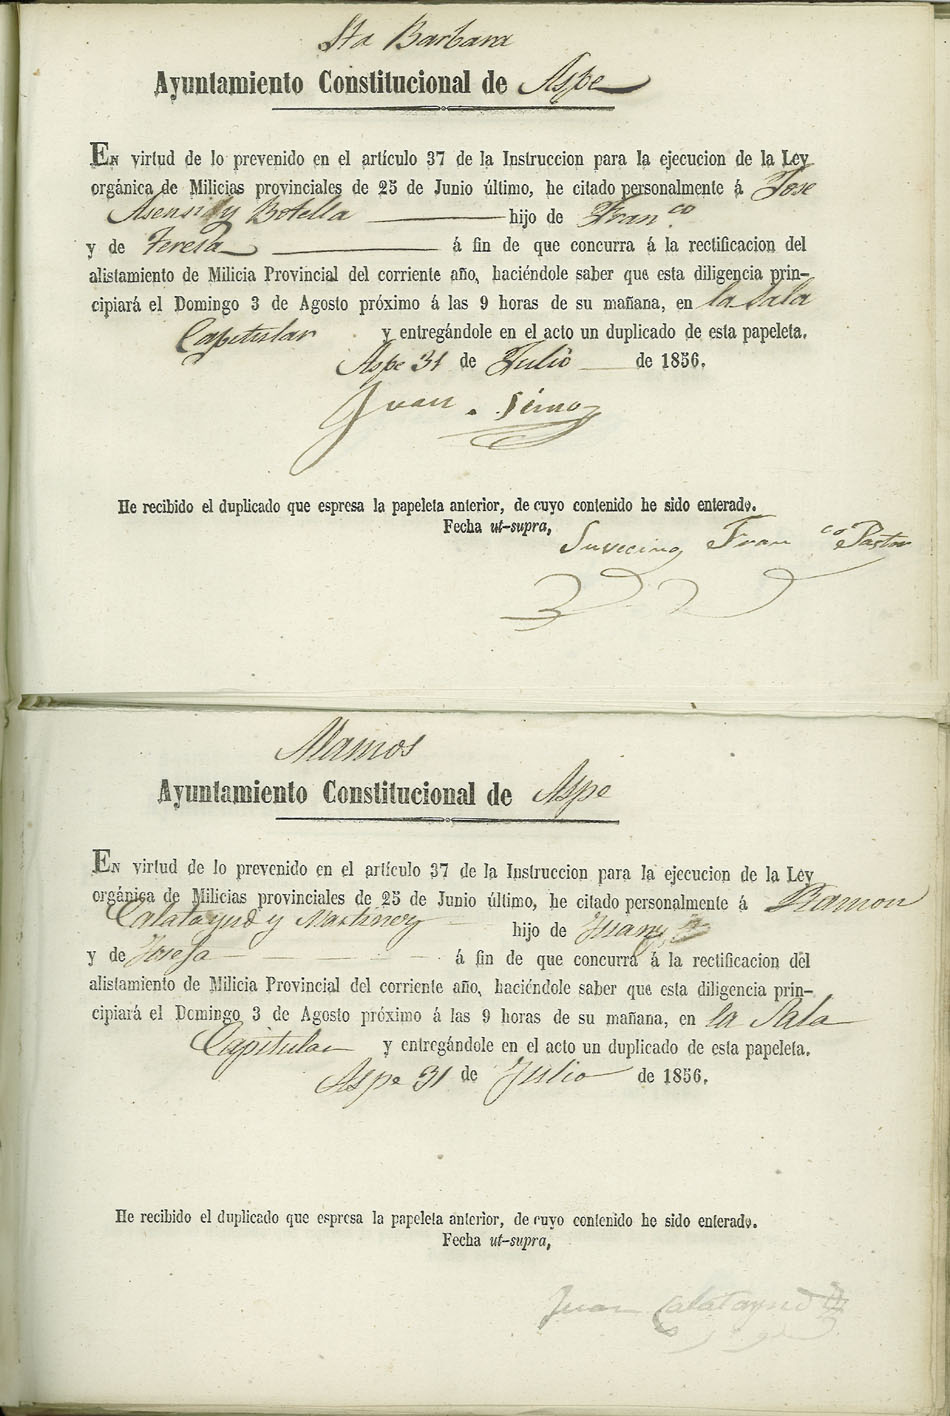 Sta Barbara
Ayuntamiento Constitucional de Aspe
En virtud de lo prevenido en el artículo 37 de la Instruccion para la ejecucion de la Ley
orgánica de Milicias provinciales de 25 de Junio último, he citado personalmente á Jose
Asensi y Botella hijo de Fran.co
y de Teresa á fin de que concurra á la rectificacion del
alistamiento de Milicia Provincial del corriente año, haciéndole saber que esta diligencia prin-
cipiará el Domingo 3 de Agosto próximo á las 9 horas de su mañana, en la Sala
Capitular y entregándole en el acto un duplicado de esta papeleta.
Aspe 31 de Julio de 1856.
Juan Simo
He recibido el duplicado que espresa la papeleta anterior, de cuyo contenido he sido enterado.
Fecha ut-supra,
Su vecino Franco Pastor
Alamos
Ayuntamiento Constitucional de Aspe
En virtud de lo prevenido en el artículo 37 de la Instruccion para la ejecucion de la Ley
orgánica de Milicias provinciales de 25 de Junio último, he citado personalmente á Ramon
Calatayud y Martinez hijo de Juan
y de Josefa á fin de que concurra á la rectificacion del
alistamiento de Milicia Provincial del corriente año, haciéndole saber que esta diligencia prin-
cipiará el Domingo 3 de Agosto próximo á las 9 horas de su mañana, en la Sala
Capitular y entregándole en el acto un duplicado de esta papeleta.
Aspe 31 de Julio de 1856.
He recibido el duplicado que espresa la papeleta anterior, de cuyo contenido he sido enterado.
Fecha ut-supra,
Juan Calatayud